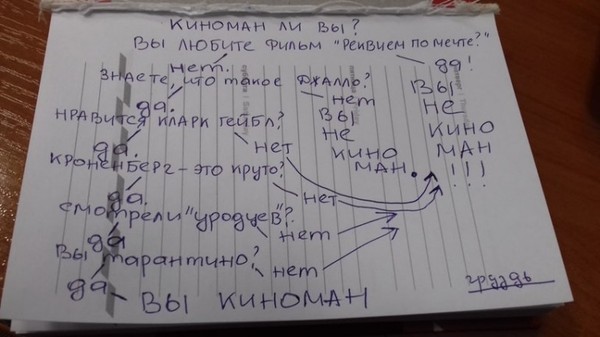 КИНОМАН ЛИ ВЫ?
ВЫ ЛЮБИТЕ ФИЛЬМ "РЕКВИЕМ ПО МЕЧТЕ?"
нет. да!
ЗНАЕТЕ, ЧТО ТАКОЕ ДЖАЛЛО?
да! нет
ВЫ НЕ КИНОМАН.
ВЫ НЕ КИНОМАН!!!
НРАВИТСЯ КЛАРК ГЕЙБЛ?
да. нет
КРОНЕНБЕРГ - ЭТО КРУТО?
да. нет
СМОТРЕЛИ "УРОДЦЕВ"?
да нет
ВЫ ТАРАНТИНО?
да нет
ВЫ КИНОМАН